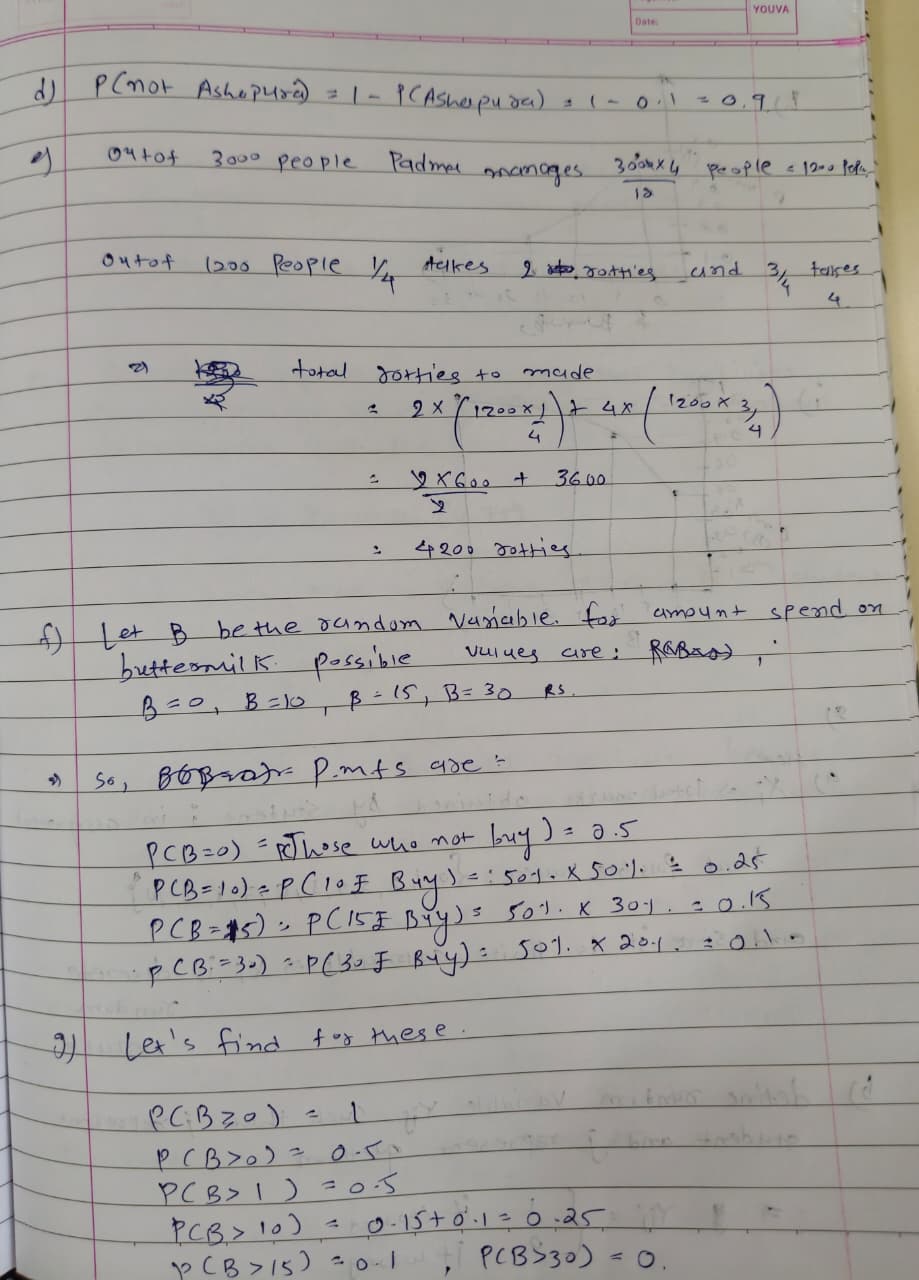 YOUVA
Date:
d) P(not Ashapura) = 1 - P(Ashapura) = 1 - 0.1 = 0.9
e) out of 3000 people Padma manages 3000x4/10 people = 1200
out of 1200 People 1/4 takes 2 rotties and 3/4 takes 4
total rotties to made
= 2 x (1200 x 1/4) + 4 x (1200 x 3/4)
= 2 x 600/2 + 3600
= 4200 rotties
f) Let B be the random variable. for amount spend on
buttermilk. possible values are:
B=0, B=10, B=15, B=30 RS.
So, P.mfs are :-
P(B=0) = P(Those who not buy) = 0.5
P(B=10) = P(10₹ Buy) = 50% x 50% = 0.25
P(B=15) = P(15₹ Buy) = 50% x 30% = 0.15
P(B=30) = P(30₹ Buy) = 50% x 20% = 0.1
g) Let's find for these.
P(B≥0) = 1
P(B>0) = 0.5
P(B>1) = 0.5
P(B>10) = 0.15+0.1 = 0.25
P(B>15) = 0.1, P(B>30) = 0.